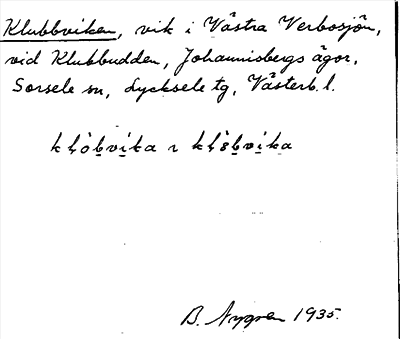 Klubbviken, vik i Västra Verbosjön,
vid Klubbudden, Johannisbergs ägor,
Sorsele sn, Lycksele tg, Västerb. l.
B. Nygren 1935.